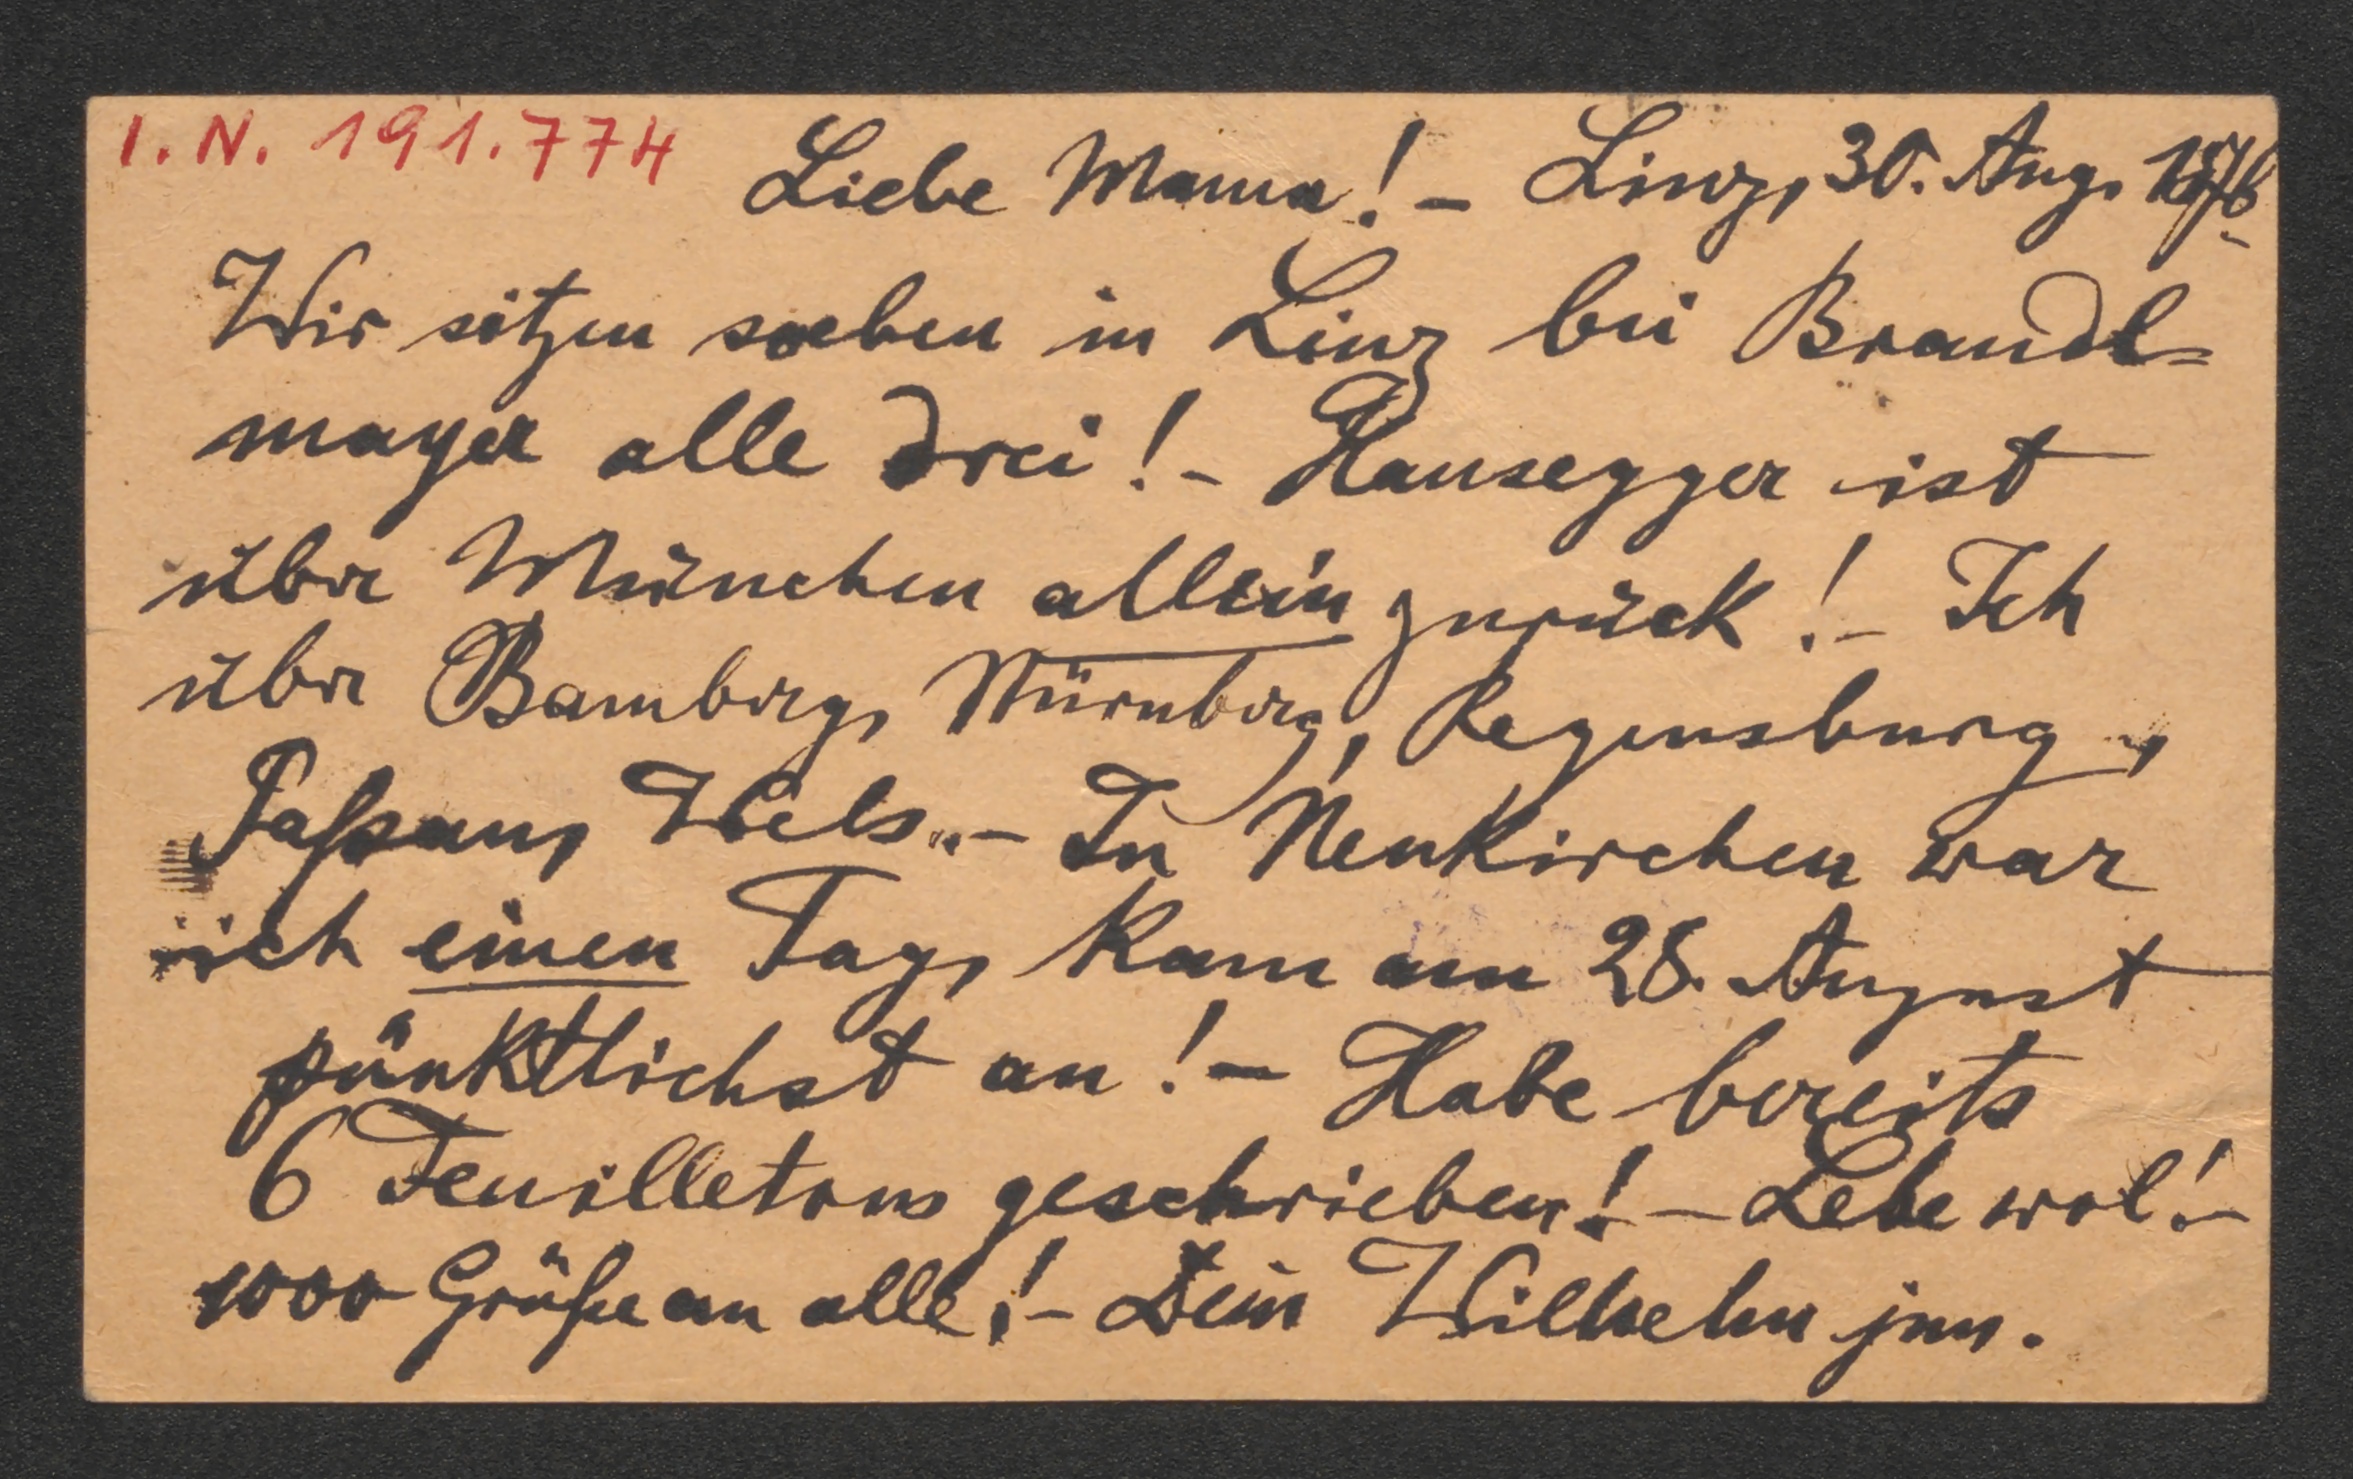 I. N. 191.774
Liebe Mama! – Linz, 30. Aug. 1876
Wir sitzen soeben in Linz bei Brandl=
mayer alle drei! – Hausegger ist
über München allein zurück! – Ich
über Bamberg, Nürnberg, Regensburg,
Paßau, Wels. – In Neukirchen war
ich einen Tag, kam am 28. August
pünktlichst an! – Habe bereits
6 Feuilletons geschrieben! – Lebe wol! –
1000 Grüße an alle! – Dein Wilhelm jun.